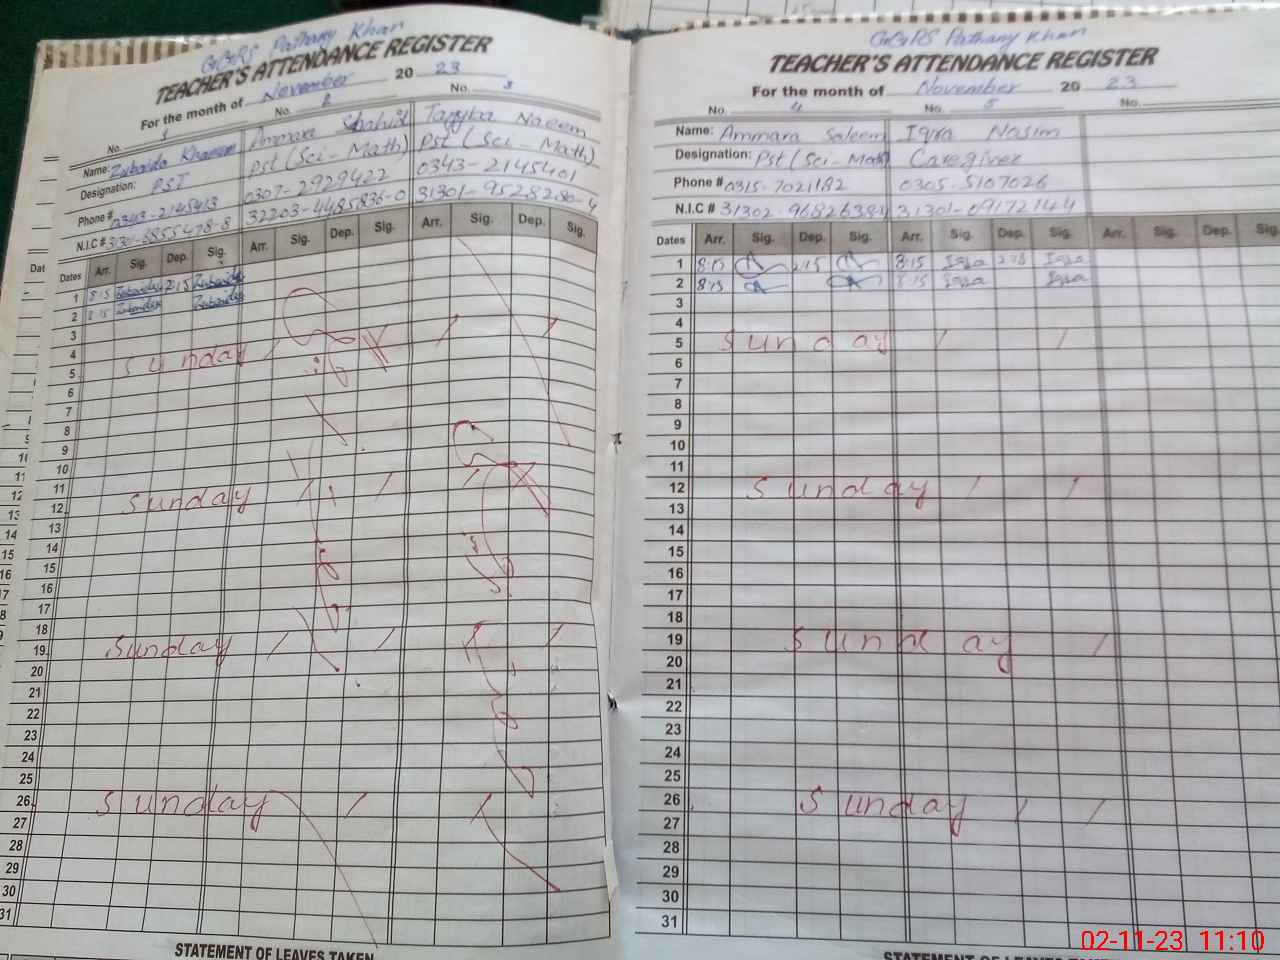 GGPS Pathany Khan
TEACHER'S ATTENDANCE REGISTER
For the month of November 20 23
No. 1 No. 2 No. 3
Name: Zubaida Khanam Ammara Shahid Tayyba Naeem
Designation: PST Pst (Sci-Math) Pst (Sci-Math)
Phone # 0343-2145413 0307-2929422 0343-2145401
N.I.C # 32203-4485836-0 31301-9528280-4
Dates Arr. Sig. Dep. Sig. Arr. Sig. Dep. Sig. Arr. Sig. Dep. Sig.
1 8:15 Zubaida 2:15 Zubaida
2 8:15 Zubaida Zubaida
3
4
5 Sunday / /
6
7
8
9
10
11
12 Sunday / /
13
14
15
16
17
18
19 Sunday / / /
20
21
22
23
24
25
26 Sunday /
27
28
29
30
31
STATEMENT OF LEAVES TAKEN
GGPS Pathany Khan
TEACHER'S ATTENDANCE REGISTER
For the month of November 20 23
No. 4 No. 5 No.
Name: Ammara Saleem Iqra Nasim
Designation: Pst (Sci-Math) Caregiver
Phone # 0315-7021182 0305-5107026
N.I.C # 31302-9682638-4 31301-09172144
Dates Arr. Sig. Dep. Sig. Arr. Sig. Dep. Sig. Arr. Sig. Dep. Sig.
1 8:15 2:15 8:15 Iqra 2:15 Iqra
2 8:15 8:15 Iqra Iqra
3
4
5 Sunday / /
6
7
8
9
10
11
12 Sunday / /
13
14
15
16
17
18
19 Sunday /
20
21
22
23
24
25
26 Sunday / /
27
28
29
30
31
STATEMENT OF LEAVES TAKEN
02-11-23 11:10